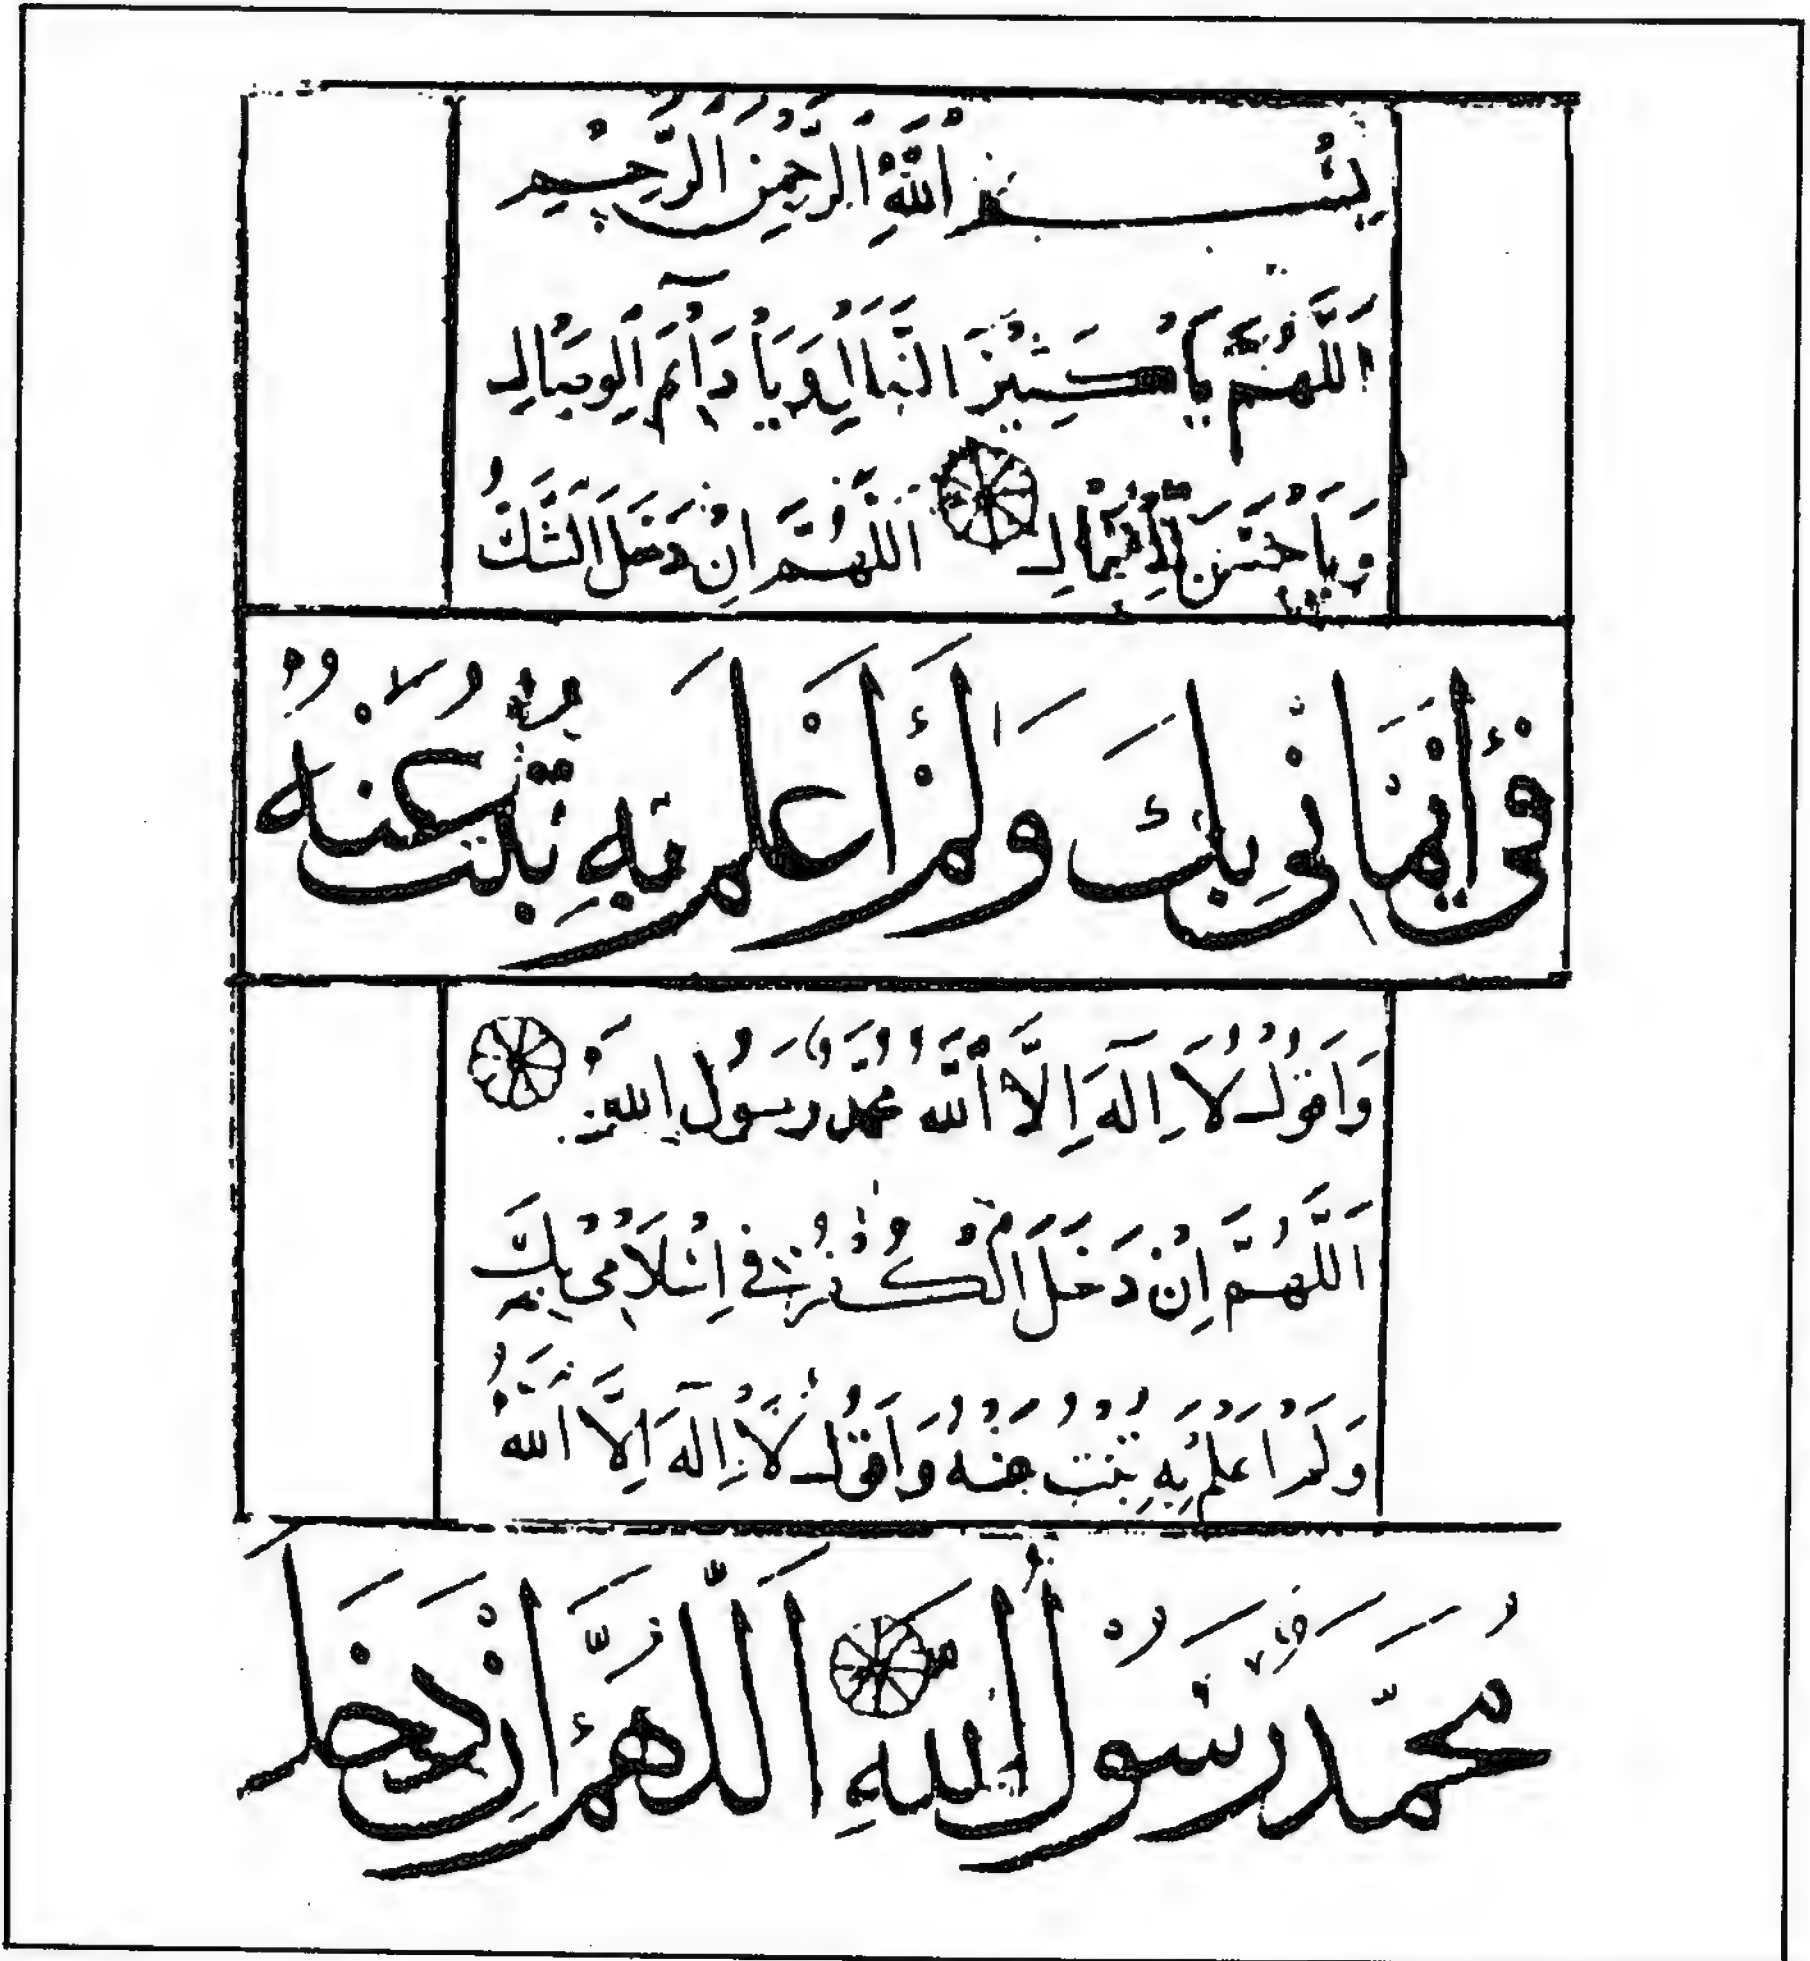 بِسْمِ اللّٰهِ الرَّحْمٰنِ الرَّحِيْمِ
اَللّٰهُمَّ يَا كَثِيْرَ النَّوَالِ وَيَا دَآئِمَ الْوِصَالِ
وَيَا حَسَنَ الْفِعَالِ اَللّٰهُمَّ اِنْ دَخَلَ الشَّكُّ
فِىْ اِيْمَانِىْ بِكَ وَلَمْ اَعْلَمْ بِهٖ تُبْتُ عَنْهُ
وَاَقُوْلُ لَا اِلٰهَ اِلَّا اللّٰهُ مُحَمَّدٌ رَسُوْلُ اللّٰهِ
اَللّٰهُمَّ اِنْ دَخَلَ الْكُفْرُ فِىْ اِسْلَامِىْ بِكَ
وَلَمْ اَعْلَمْ بِهٖ تُبْتُ عَنْهُ وَاَقُوْلُ لَا اِلٰهَ اِلَّا اللّٰهُ
مُحَمَّدٌ رَسُوْلُ اللّٰهِ اَللّٰهُمَّ اِنْ دَخَلَ